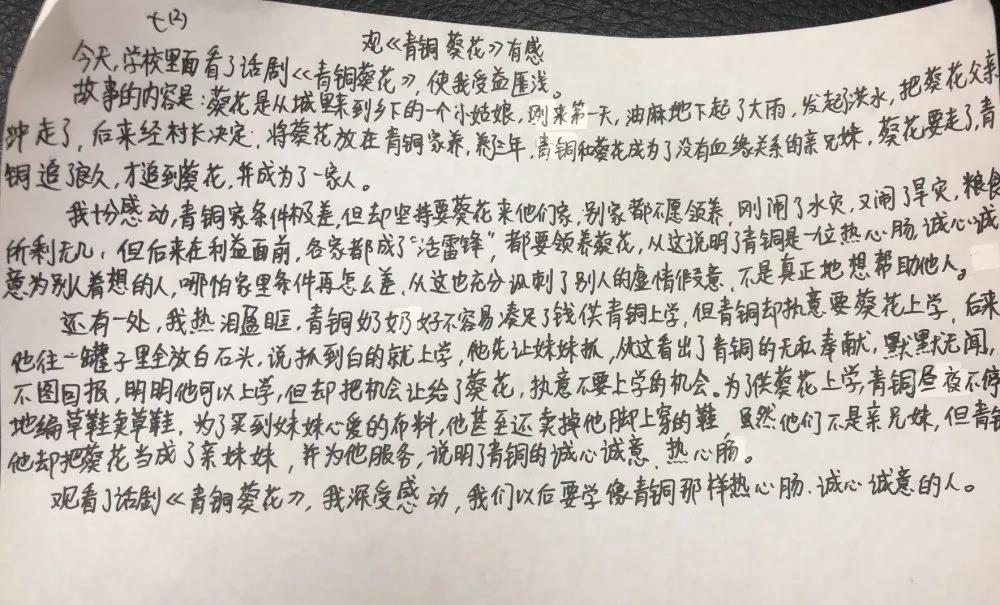 七(2)
观《青铜葵花》有感
今天,学校里面看了话剧《青铜葵花》,使我受益匪浅。
故事的内容是:葵花是从城里来到乡下的一个小姑娘,刚来第一天,油麻地下起了大雨,发起了洪水,把葵花父亲
冲走了,后来经村长决定,将葵花放在青铜家养,养三年,青铜和葵花成为了没有血缘关系的亲兄妹,葵花要走了,青
铜追了很久,才追到葵花,并成为了一家人。
我十分感动,青铜家条件极差,但却坚持要葵花来他们家,别家都不愿领养,刚闹了水灾,又闹了旱灾,粮食
所剩无几,但后来在利益面前,各家都成了“活雷锋”,都要领养葵花,从这说明了青铜是一位热心肠,诚心诚
意为别人着想的人,哪怕家里条件再怎么差,从这也充分讽刺了别人的虚情假意,不是真正地想帮助他人。
还有一处,我热泪盈眶,青铜奶奶好不容易凑足了钱供青铜上学,但青铜却执意要葵花上学,后来
他往一罐子里全放白石头,说抓到白的就上学,他先让妹妹抓,从这看出了青铜的无私奉献,默默无闻,
不图回报,明明他可以上学,但却把机会让给了葵花,执意不要上学的机会。为了供葵花上学,青铜昼夜不停
地编草鞋卖草鞋,为了买到妹妹心爱的布料,他甚至还卖掉他脚上穿的鞋,虽然他们不是亲兄妹,但青铜
他却把葵花当成了亲妹妹,并为他服务,说明了青铜的诚心诚意、热心肠。
观看了话剧《青铜葵花》,我深受感动,我们以后要学像青铜那样热心肠、诚心诚意的人。